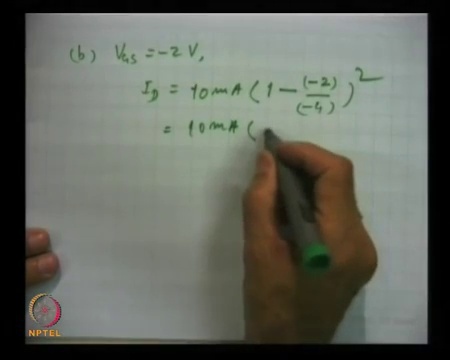 (b) VGS = -2 V,
ID = 10 mA (1 - (-2)/(-4))²
= 10 mA (
NPTEL